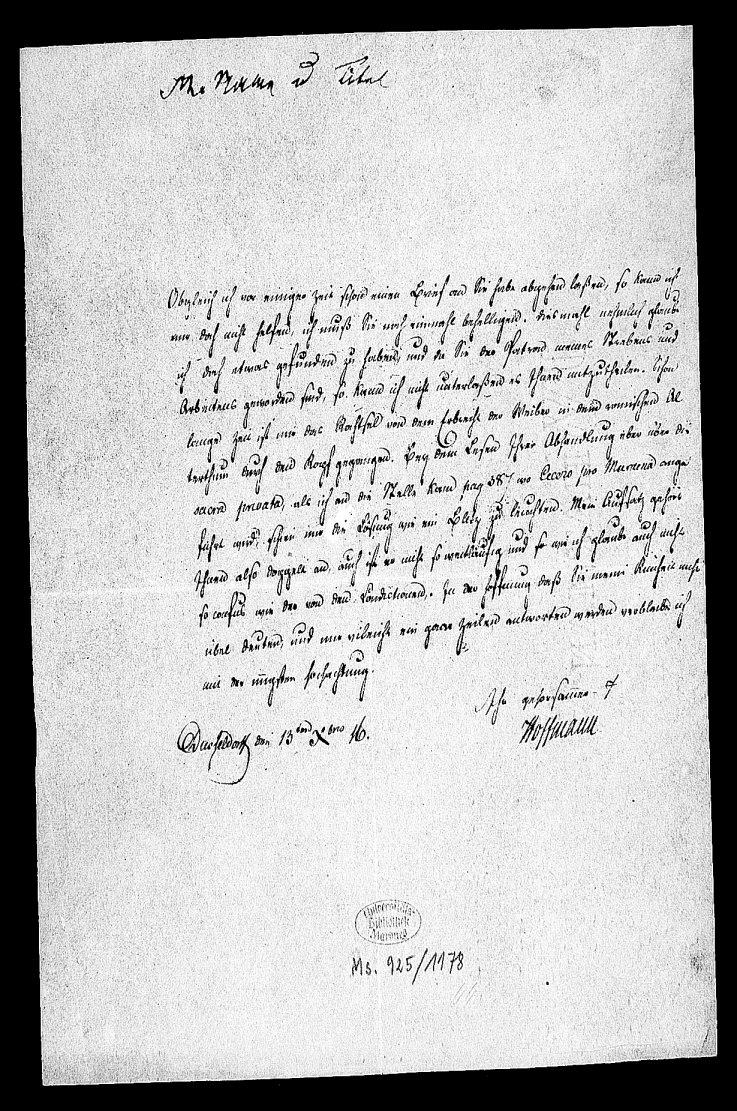 Name u Titel
Obgleich ich vor einiger Zeit schon einen Brief an Sie habe abgehen laßen, so kann ich
mir doch nicht helfen, ich muß Sie noch einmahl behelligen. Diesmahl nehmlich glaube
ich doch etwas gefunden zu haben, und da Sie der Patron meines Strebens und
Arbeitens geworden sind, so kann ich nicht unterlaßen es Ihnen mitzutheilen. Schon
lange Zeit ist mir das Räthsel von dem Erbrecht der Weiber in dem römischen Al
terthum durch den Kopf gegangen. Bey dem Lesen Ihrer Abhandlung über die
sacra privata, als ich an die Stelle kam pag 387 wo Cicero pro Murena ange
führt wird, schien mir die Lösung wie ein Blitz zu leuchten. Mein Aufsatz gehört
Ihnen also doppelt an, auch ist er nicht so weitläufig und so wie ich glaube auch nicht
so confus wie der von den Condictionen. In der Hoffnung daß Sie meine Kühnheit nicht
übel deuten, und mir vileicht ein paar Zeilen antworten werden verbleibe ich
mit der innigsten Hochachtung.
Ihr gehorsammer
Hoffmann
Duesseldorff den 13ten Xbro 16.
Universitäts-
Bibliothek
Marburg
Ms. 925/1178